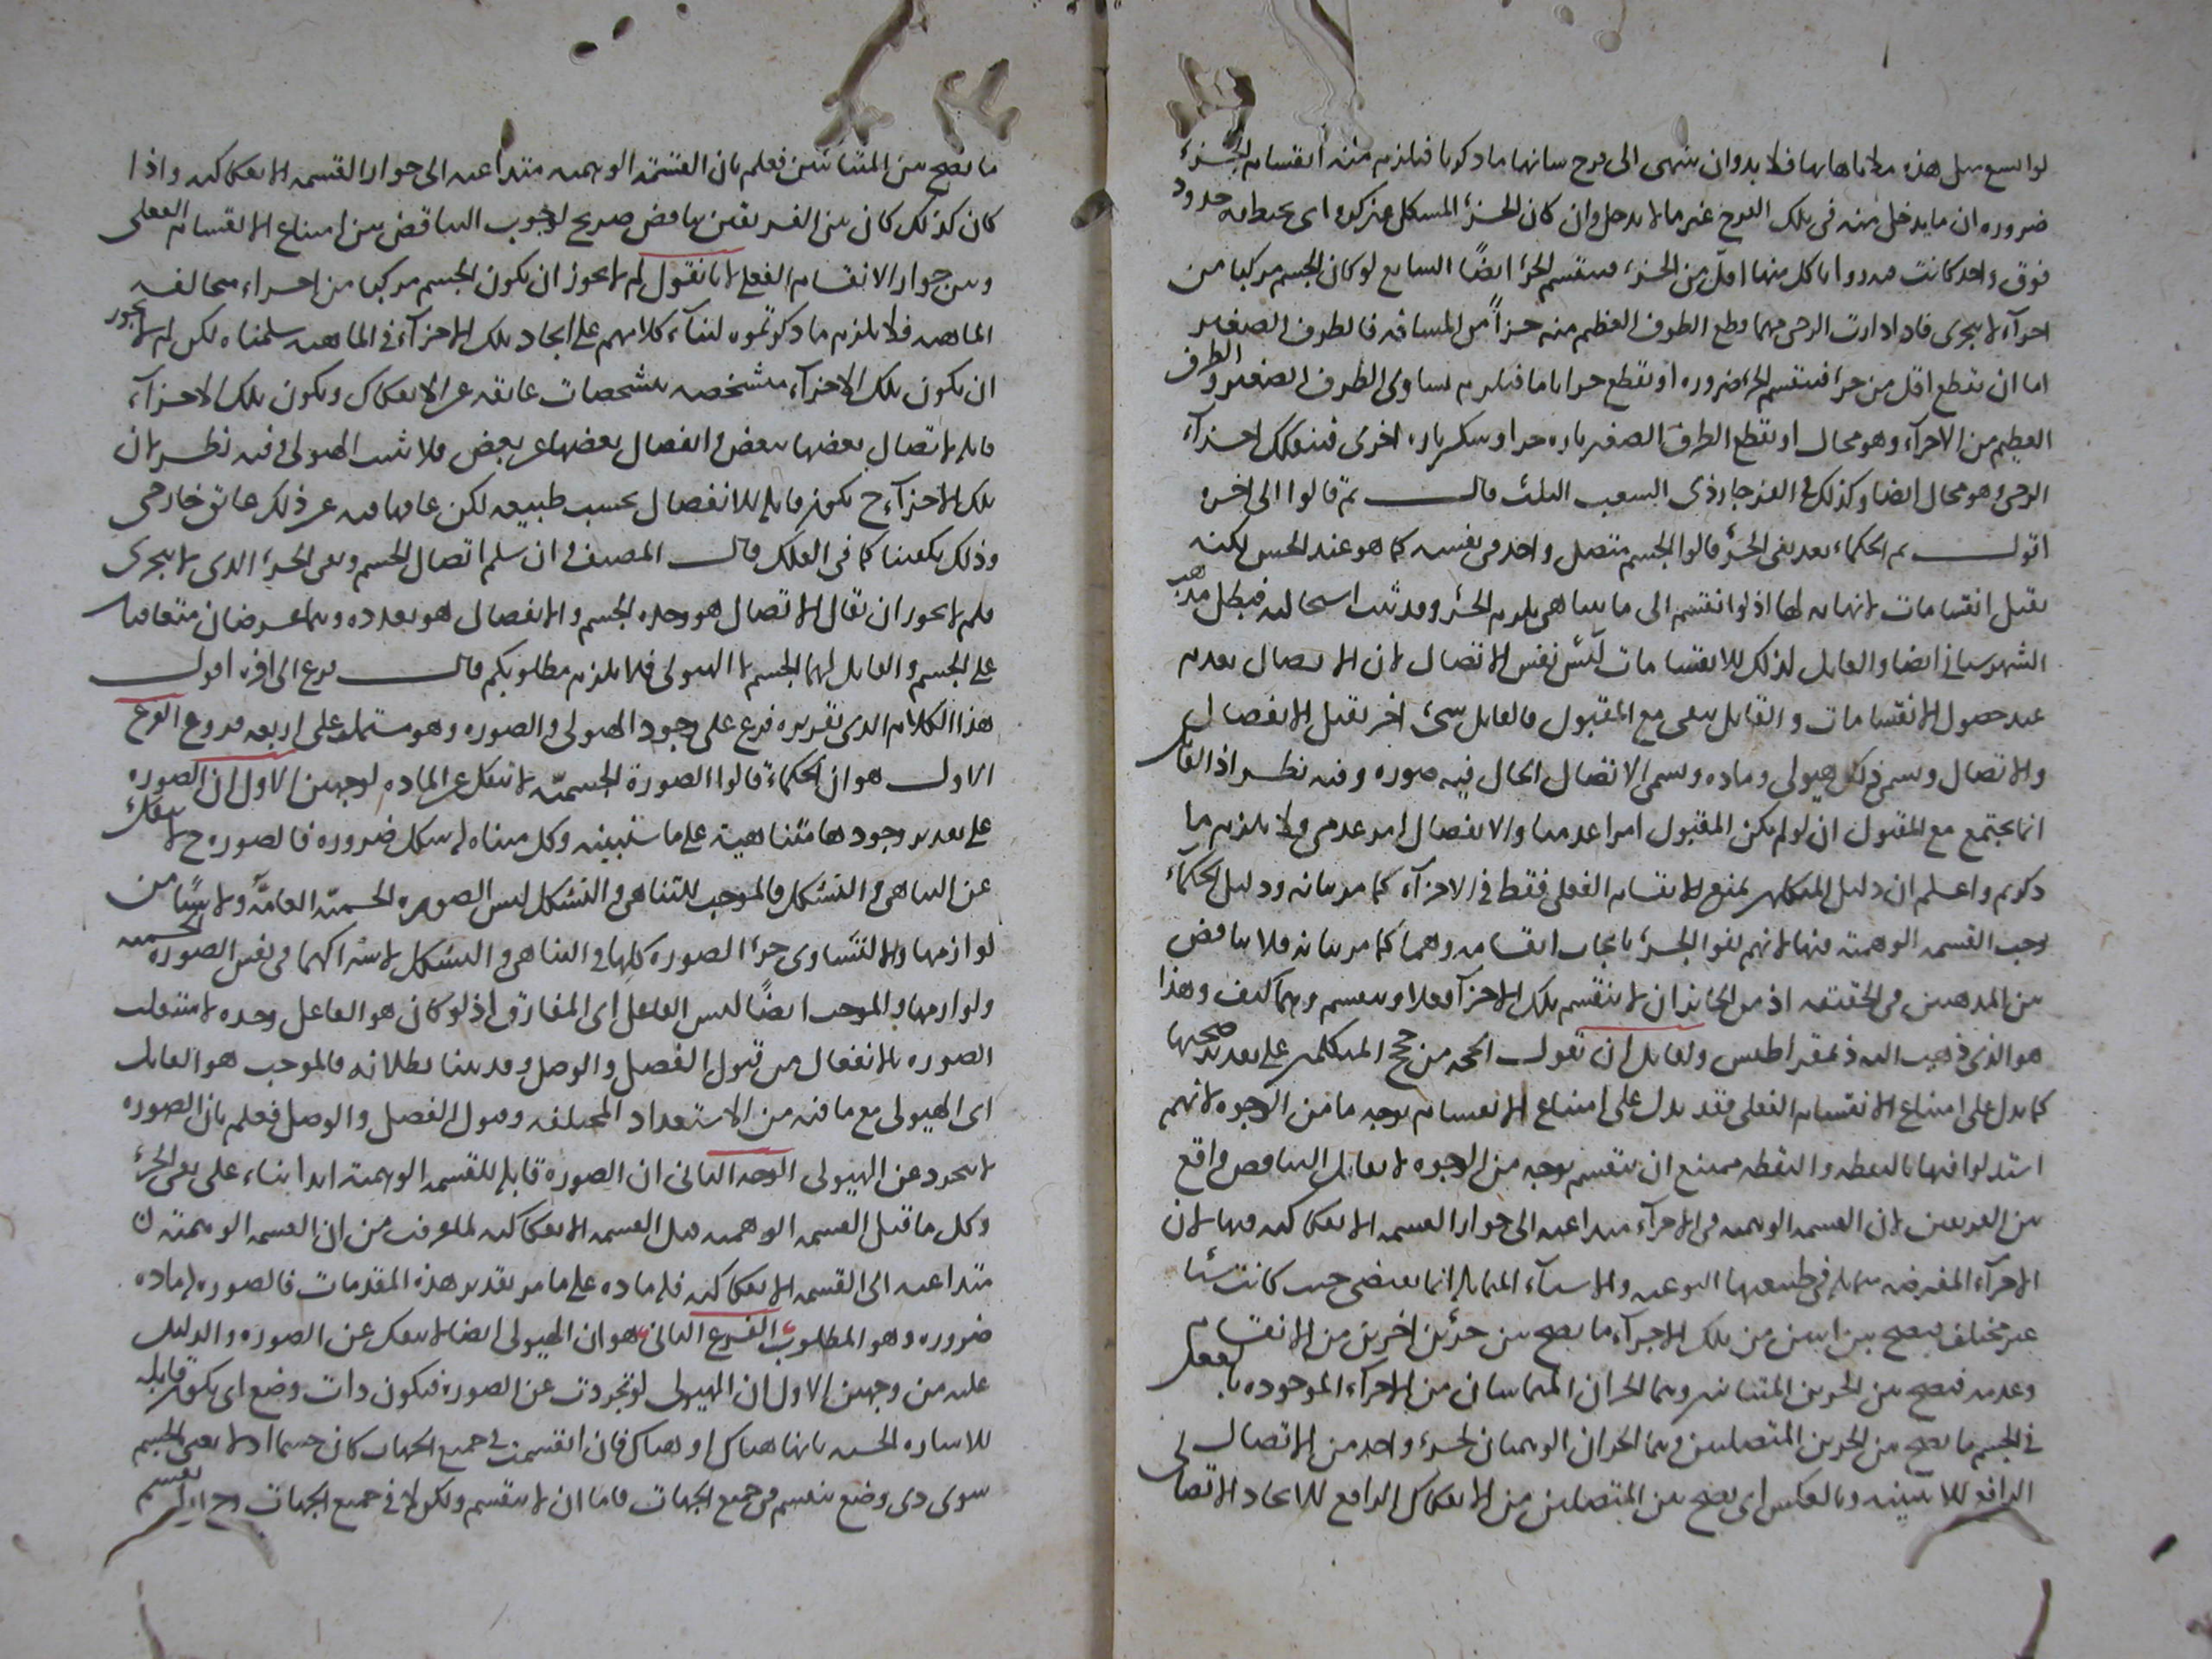 ضرورة ان ما يدخل منه في تلك الفرج غير ما لا يدخل وان كان الجزء المشكل غير كرة اى يحيط به حدود
فوق واحد كانت زوايا كل منها اقل من الجزء فينقسم الجزء ايضا السابع لو كان الجسم مركبا من
اجزآء لا تتجزى فاذا دارت الرحى مهما قطع الطوق العظيم منه جزأ من المسافة فالطوق الصغير
اما ان يقطع اقل من جزء فينقسم الجزء ضرورة او يقطع جزءا تاما فيلزم تساوى الطوق الصغير والطوق
العظيم من الاجزآء وهو محال او يقطع الطوق الصغير تارة جزءا ويسكن تارة اخرى فينفكك اجزآء
الرحى وهو محال ايضا وكذلك في الفرجار ذى الشعب الثلث قال ثم قالوا الى اخره
اقول ثم الحكماء بعد نفى الجزء قالوا الجسم متصل واحد في نفسه كما هو عند الحس لكنه
يقبل انقسامات لا نهاية لها اذ لو انقسم الى ما يتناهى يلزم الجزء وقد ثبت استحالته فبطل مذهب
الشهرستاني ايضا والقابل لذلك للانقسامات ليس نفس الاتصال لان الاتصال يعدم
عند حصول الانقسامات والقابل يبقى مع المقبول فالقابل شئ اخر يقبل الانفصال
والاتصال ويسمى ذلك هيولى ومادة ويسمى الاتصال الحال فيه صورة وفيه نظر اذ القابل
انما يجتمع مع المقبول ان لو لم يكن المقبول امرا عدميا والانفصال امر عدمى فلا يلزم ما
ذكرتم واعلم ان دليل المتكلمين يمنع الانقسام الفعلى فقط في الاجزآء كما مر بيانه ودليل الحكماء
وجب القسمة الوهمية فيها لانهم نفوا الجزء بايجاب انقسامه وهما كما مر بيانه فلا تناقض
بين المذهبين في الحقيقة اذ من الجائز ان لا ينقسم تلك الاجزآء فعلا وينقسم وهما كيف وهذا
هو الذى ذهب اليه ذيمقراطيس ولقائل ان يقول الحجة من حجج المتكلمين على تقدير صحتها
كما يدل على امتناع الانقسام الفعلى فقد يدل على امتناع الانقسام بوجه ما من الوجوه لانهم
استدلوا فيها بالنقطة والنقطة ممتنع ان تنقسم بوجه من الوجوه لا يقال التناقض واقع
بين الفريقين لان القسمة الوهمية في الاجزآء متداعية الى جواز القسمة الانفكاكية فيها لان
الاجزآء المفترضة متماثلة في طبيعتها النوعية والاشيآء المتماثلة انما يقتضى حيث كانت شيئا
غير مختلف فيصح بين اثنين من تلك الاجزآء ما يصح بين جزئين اخرين من الانقسام
وعدمه فيصح بين الجزئين المتباينين وهما الجزءان المتماسان من الاجزآء الموجودة بالفعل
في الجسم ما يصح بين الجزئين المتصلين وهما الجزءان الوهميان لجزء واحد من الاتصال
الرافع للاثنينية وبالعكس اى يصح بين المتصلين من الانفكاك الرافع للاتحاد الاتصالى
ما يصح بين المتباينين فعلم بان القسمة الوهمية متداعية الى جواز القسمة الانفكاكية واذا
كان كذلك كان بين الفريقين تناقض صريح لوجوب التناقض بين امتناع الانقسام الفعلى
وبين جواز الانقسام الفعلى لانا نقول لم لا يجوز ان يكون الجسم مركبا من اجزاء متخالفة
الماهية فلا يلزم ما ذكرتموه لبنآء كلامهم على اتحاد تلك الاجزآء في الماهية سلمناه لكن لم لا يجوز
ان يكون تلك الاجزآء متشخصة بتشخصات عائقة عن الانفكاك ويكون تلك الاجزآء
قابلة لاتصال بعضها ببعض وانفصال بعضها عن بعض فلا تثبت الهيولى وفيه نظر لان
تلك الاجزآء ح تكون قابلة للانفصال بحسب طبيعته لكن عاقها فيه عن ذلك عائق خارجى
وذلك يكفينا كما في الفلك قال المصنف وان سلم اتصال الجسم ونفى الجزء الذى لا يتجزى
فلم لا يجوز ان يقال الاتصال هو وحدة الجسم والانفصال هو تعدده وهما عرضان متعاقبان
على الجسم والقابل لهما الجسم لا الهيولى فلا يلزم مطلوبكم قال فرع الى اخره اقول
هذا الكلام الذى نقرره فرع على وجود الهيولى والصورة وهو مشتمل على اربعة فروع الفرع
الاول هو ان الحكماء قالوا الصورة الجسمية لا تنفك عن المادة لوجهين الاول ان الصورة
على تقدير وجودها متناهية على ما سنبينه وكل متناه له شكل ضرورة فالصورة ح لا تنفك
عن التناهى والتشكل فالموجب للتناهى والتشكل ليس الصورة الجسمية العامة ولا شيئا من
لوازمها والا لتساوى جزء الصورة كلها في التناهى والتشكل لاشتراكهما في نفس الصورة الجسمية
ولوازمها والموجب ايضا ليس الفاعل اى المفارق اذ لو كان هو الفاعل وحده لاستقلت
الصورة بالانفعال من قبول الفصل والوصل وقد بينا بطلانه فالموجب هو القابل
اى الهيولى مع ما فيه من الاستعداد المختلفة وقبول الفصل والوصل فعلم بان الصورة
لا تتجرد عن الهيولى الوجه الثانى ان الصورة قابلة للقسمة الوهمية ابدا بناء على نفى الجزء
وكل ما قبل القسمة الوهمية قبل القسمة الانفكاكية لما عرفت من ان القسمة الوهمية
متداعية الى القسمة الانفكاكية فله مادة على ما مر تقدير هذه المقدمات فالصورة لها مادة
ضرورة وهو المطلوب الفرع الثانى هو ان الهيولى ايضا لا تنفك عن الصورة والدليل
عليه من وجهين الاول ان الهيولى لو تجردت عن الصورة فيكون ذات وضع اى يكون قابلة
للاشارة الحسية بانها هناك او هناك فان انقسمت في جميع الجهات كان جسما اذ لا نعنى بالجسم
سوى ذى وضع ينقسم في جميع الجهات فاما ان لا ينقسم ولكن لا في جميع الجهات وح